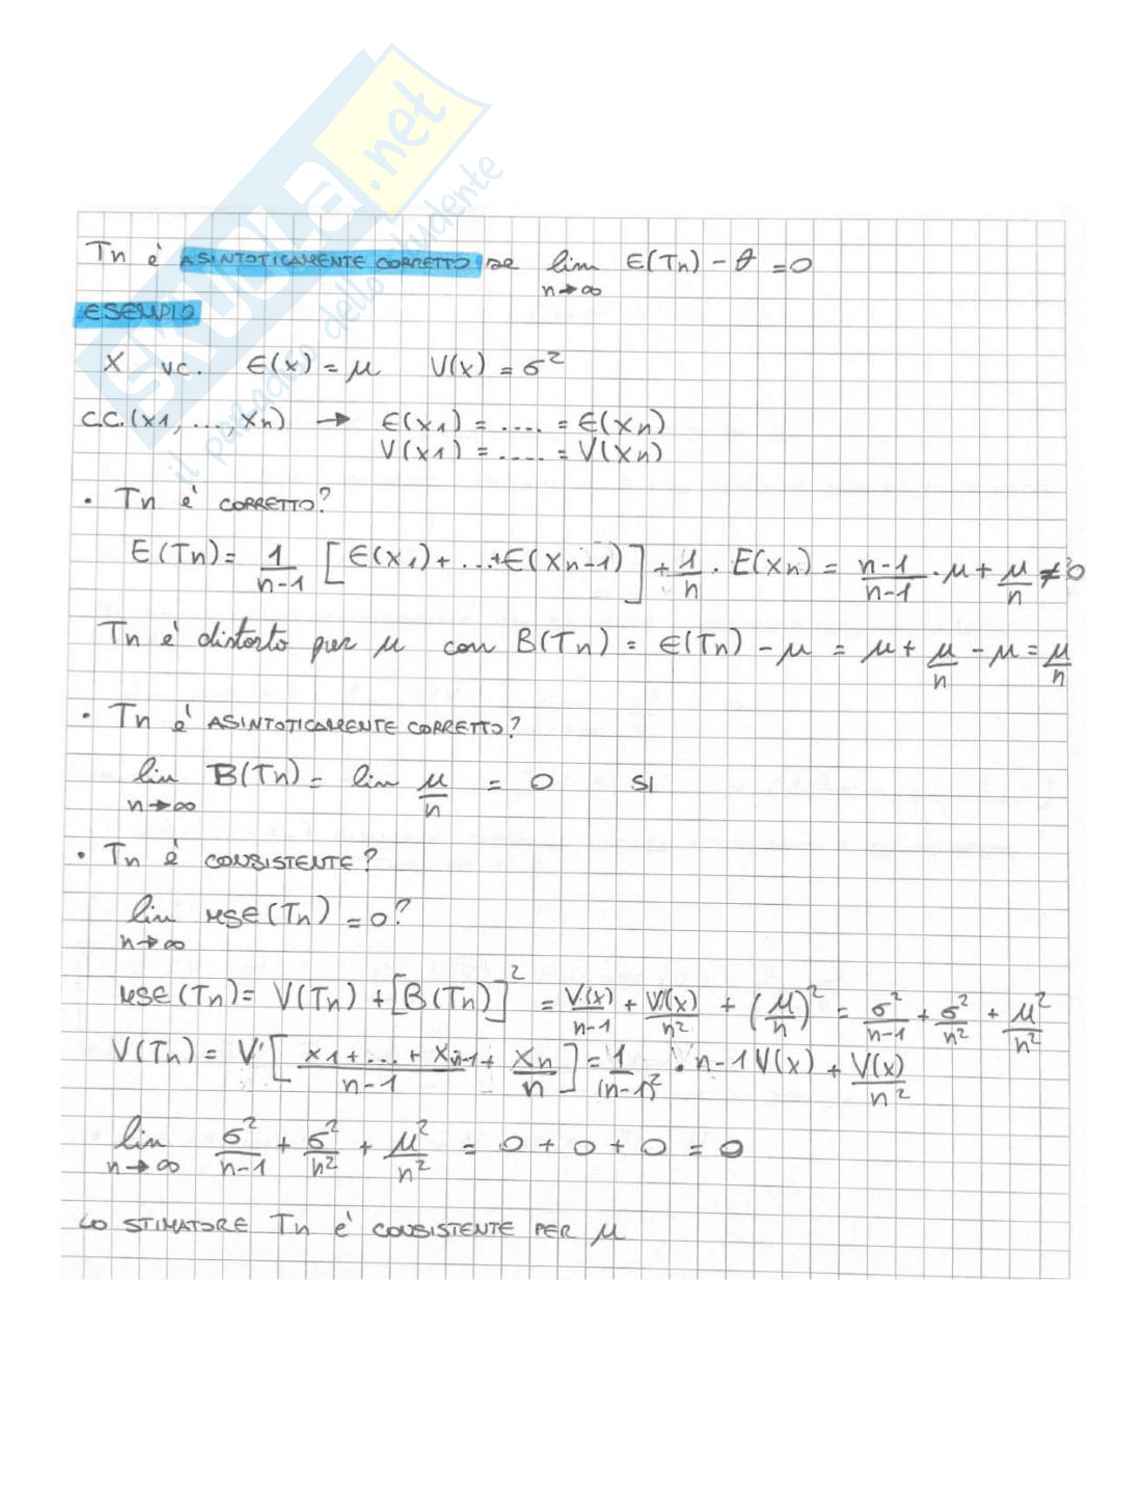 SKUOLA.net
il paradiso dello studente
Tn è ASINTOTICAMENTE CORRETTO se lim E(Tn) - θ = 0
n→∞
ESEMPIO
X vc. E(x) = μ V(x) = σ²
C.C.(x1, ..., xn) → E(x1) = .... = E(xn)
V(x1) = ..... = V(xn)
• Tn è CORRETTO?
E(Tn) = 1/(n-1) [E(x1)+...+E(xn-1)] + 1/n · E(xn) = (n-1)/(n-1) · μ + μ/n ≠ 0
Tn è distorto per μ con B(Tn) = E(Tn) - μ = μ + μ/n - μ = μ/n
• Tn è ASINTOTICAMENTE CORRETTO?
lim B(Tn) = lim μ/n = 0 SI
n→∞
• Tn è CONSISTENTE?
lim MSE(Tn) = 0?
n→∞
MSE(Tn) = V(Tn) + [B(Tn)]² = V(x)/(n-1) + V(x)/n² + (μ/n)² = σ²/(n-1) + σ²/n² + μ²/n²
V(Tn) = V[(x1+...+xn-1)/(n-1) + xn/n] = 1/(n-1)² · n-1 V(x) + V(x)/n²
lim σ²/(n-1) + σ²/n² + μ²/n² = 0 + 0 + 0 = 0
n→∞
LO STIMATORE Tn È CONSISTENTE PER μ